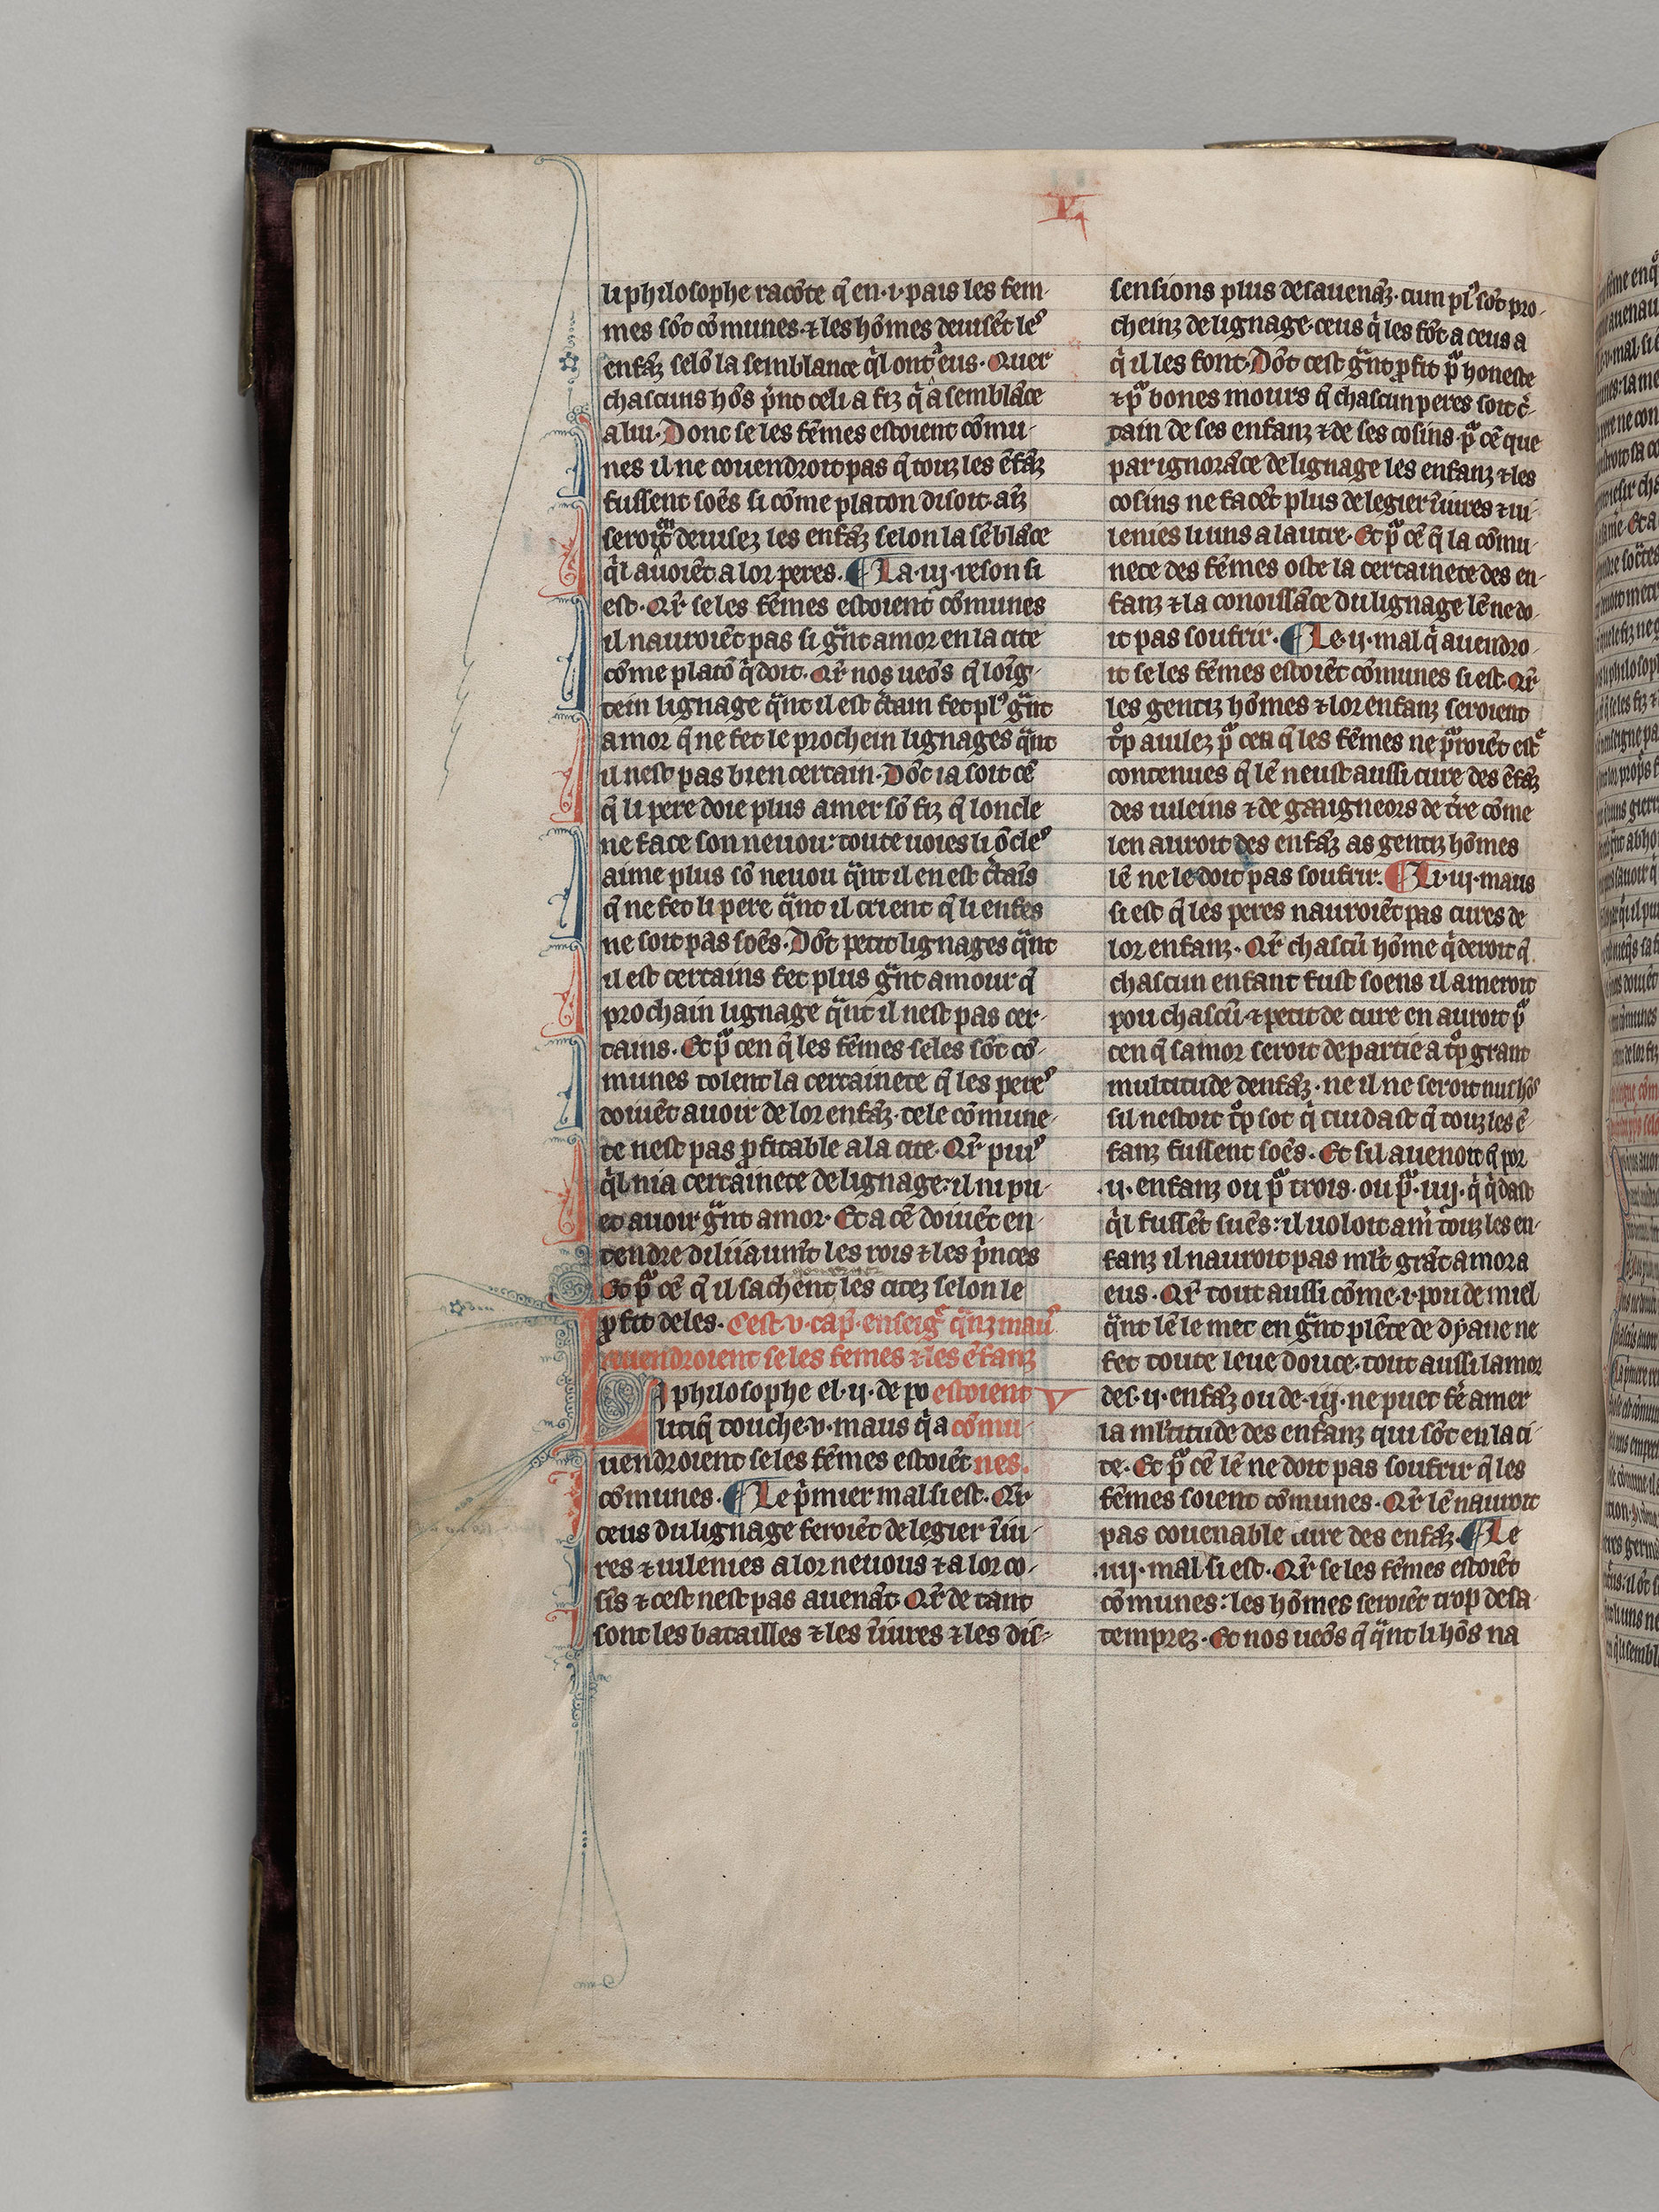 V
li philosophe racōte q̄ en ·i· pais les fem-
mes sōt cōmunes· ⁊ les hōmes deuisēt leˢ
enfāz selō la semblance qͥl ont eus· Quer
chascuns hōs pͥnt celi a fiz qͥ a semblāce
a lui· Donc se les fēmes estoient cōmu-
nes il ne couendroit pas q̄ touz les ēfāz
fussent soēs si cōme platon disoit· aīz
seroiēt deuisez les enfāz selon la sēblāce
qͥl auoiēt a lor peres. ¶ La ·iij· reson si
est· Qr̄ se les fēmes estoient cōmunes
il nauroiēt pas si gᷓnt amor en la cite
cōme platō qͥdoit· Qr̄ nos ueōs q̄ loīg-
tein lignage qᷓnt il est c̄tain fet plꝰ gᷓnt
amor q̄ ne fet le prochein lignages qᷓnt
il nest pas bien certain· Dōt ia soit cē
q̄ li pere doie plus amer sō fiz q̄ loncle
ne face son neuou: toute uoies li ōcleˢ
aime plus sō neuou qᷓnt il en est c̄taīs
q̄ ne fet li pere qᷓnt il crient q̄ li enfes
ne soit pas soēs· Dōt petit lignages qᷓnt
il est certains fet plus gᷓnt amour q̄
prochain lignage qᷓnt il nest pas cer-
tains. Et pᷓ cen q̄ les fēmes seles sōt cō-
munes tolent la certainete q̄ les pereˢ
doiuēt auoir de lor enfāz· tele cōmune-
te nest pas ꝓfitable a la cite· Qr̄ puiˢ
qͥl nia certainete de lignage: il ni pu-
et auoir gᷓnt amor· Et a cē doiuēt en-
tendre diliiaumt les rois ⁊ les pͥnces
Et pᷓ cē q̄ il sachent les citez selon le
ꝓfit deles· Cest ·v· cap̄· enseigͤ qᷓnz mauˢ
reuendroient se les femes ⁊ les ēfanz
Li philosophe el ·ij· de po estoient
litiq̄ touche ·v· maus qͥ a cōmu-
uendroient se les fēmes estoiēt nes.
cōmunes· ¶ Le pͥmier mal si est· Qr̄
ceus du lignage feroiēt de legier īiu-
res ⁊ uilenies a lor neuous ⁊ a lor co-
sīs ⁊ cest nest pas auenāt· Qr̄ de tant
sont les batailles ⁊ les īiures ⁊ les dis-
sensions plus desauenāz· cum plꝰ sōt pro-
cheinz de lignage· ceus qͥ les fōt a ceus a
qͥ il les font· Dōt cest gᷓnt ꝓfit pᷓ honeste
⁊ pᷓ bones mours q̄ chascun peres soit c̄-
tain de ses enfanz ⁊ de ses cosins· pᷓ cē que
par ignorāce de lignage les enfanz ⁊ les
cosins ne facēt plus de legier īiures ⁊ ui-
lenies li uns a lautre· Et pᷓ cē q̄ la cōmu-
nete des fēmes oste la certainete des en-
fanz ⁊ la conoissāce du lignage lē ne do-
it pas soufrir· ¶ Le ·ij· mal qͥ auendro-
it se les fēmes estoiēt cōmunes si est· Qr̄
les gentiz hōmes ⁊ lor enfanz seroient
tͦp auilez pᷓ cen q̄ les fēmes ne pᷓroiēt estͤ
contenues q̄ lē neust aussi cure des ēfāz
des uileins ⁊ de gaaigneors de tr̄e cōme
len auroit des enfāz as gentiz hōmes
lē ne le doit pas soufrir. ¶ Li ·iij· maus
si est q̄ les peres nauroiēt pas cures de
lor enfanz· Qr̄ chascū hōme qͥderoit q̄
chascun enfant fust soens il ameroit
pou chascū· ⁊ petit de cure en auroit pᷓ
cen q̄ samor seroit departie a tͦp grant
multitude denfāz· ne il ne seroit nus hōs
sil nestoit tͦp sot qͥ cuidast q̄ touz les ē-
fanz fussent soēs· Et sil auenoit q̄ por
·ij· enfanz ou pᷓ trois· ou pᷓ ·iiij· qͥ qͥdast
qͥl fussēt suēs: il uoloit am̄ touz les en-
fanz il nauroit pas ml̄t grāt amor a
eus· Qr̄ tout aussi cōme ·i· pou de miel
qᷓnt lē le met en gᷓnt plēte de dyaue ne
fet toute leue douce· tout aussi lamor
des ·ij· enfāz ou de ·iij· ne puet fē amer
la ml̄titude des enfānz qui sōt en la ci-
te· Et pᷓ cē lē ne doit pas soufrir q̄ les
fēmes soient cōmunes· Qr̄ lē nauroit
pas couenable cure des enfāz· ¶ Le
·iiij· mal si est· Qr̄ se les fēmes estoiēt
cōmunes: les hōmes seroiēt trop desa-
temprez· Et nos ueōs q̄ qᷓnt li hōs na